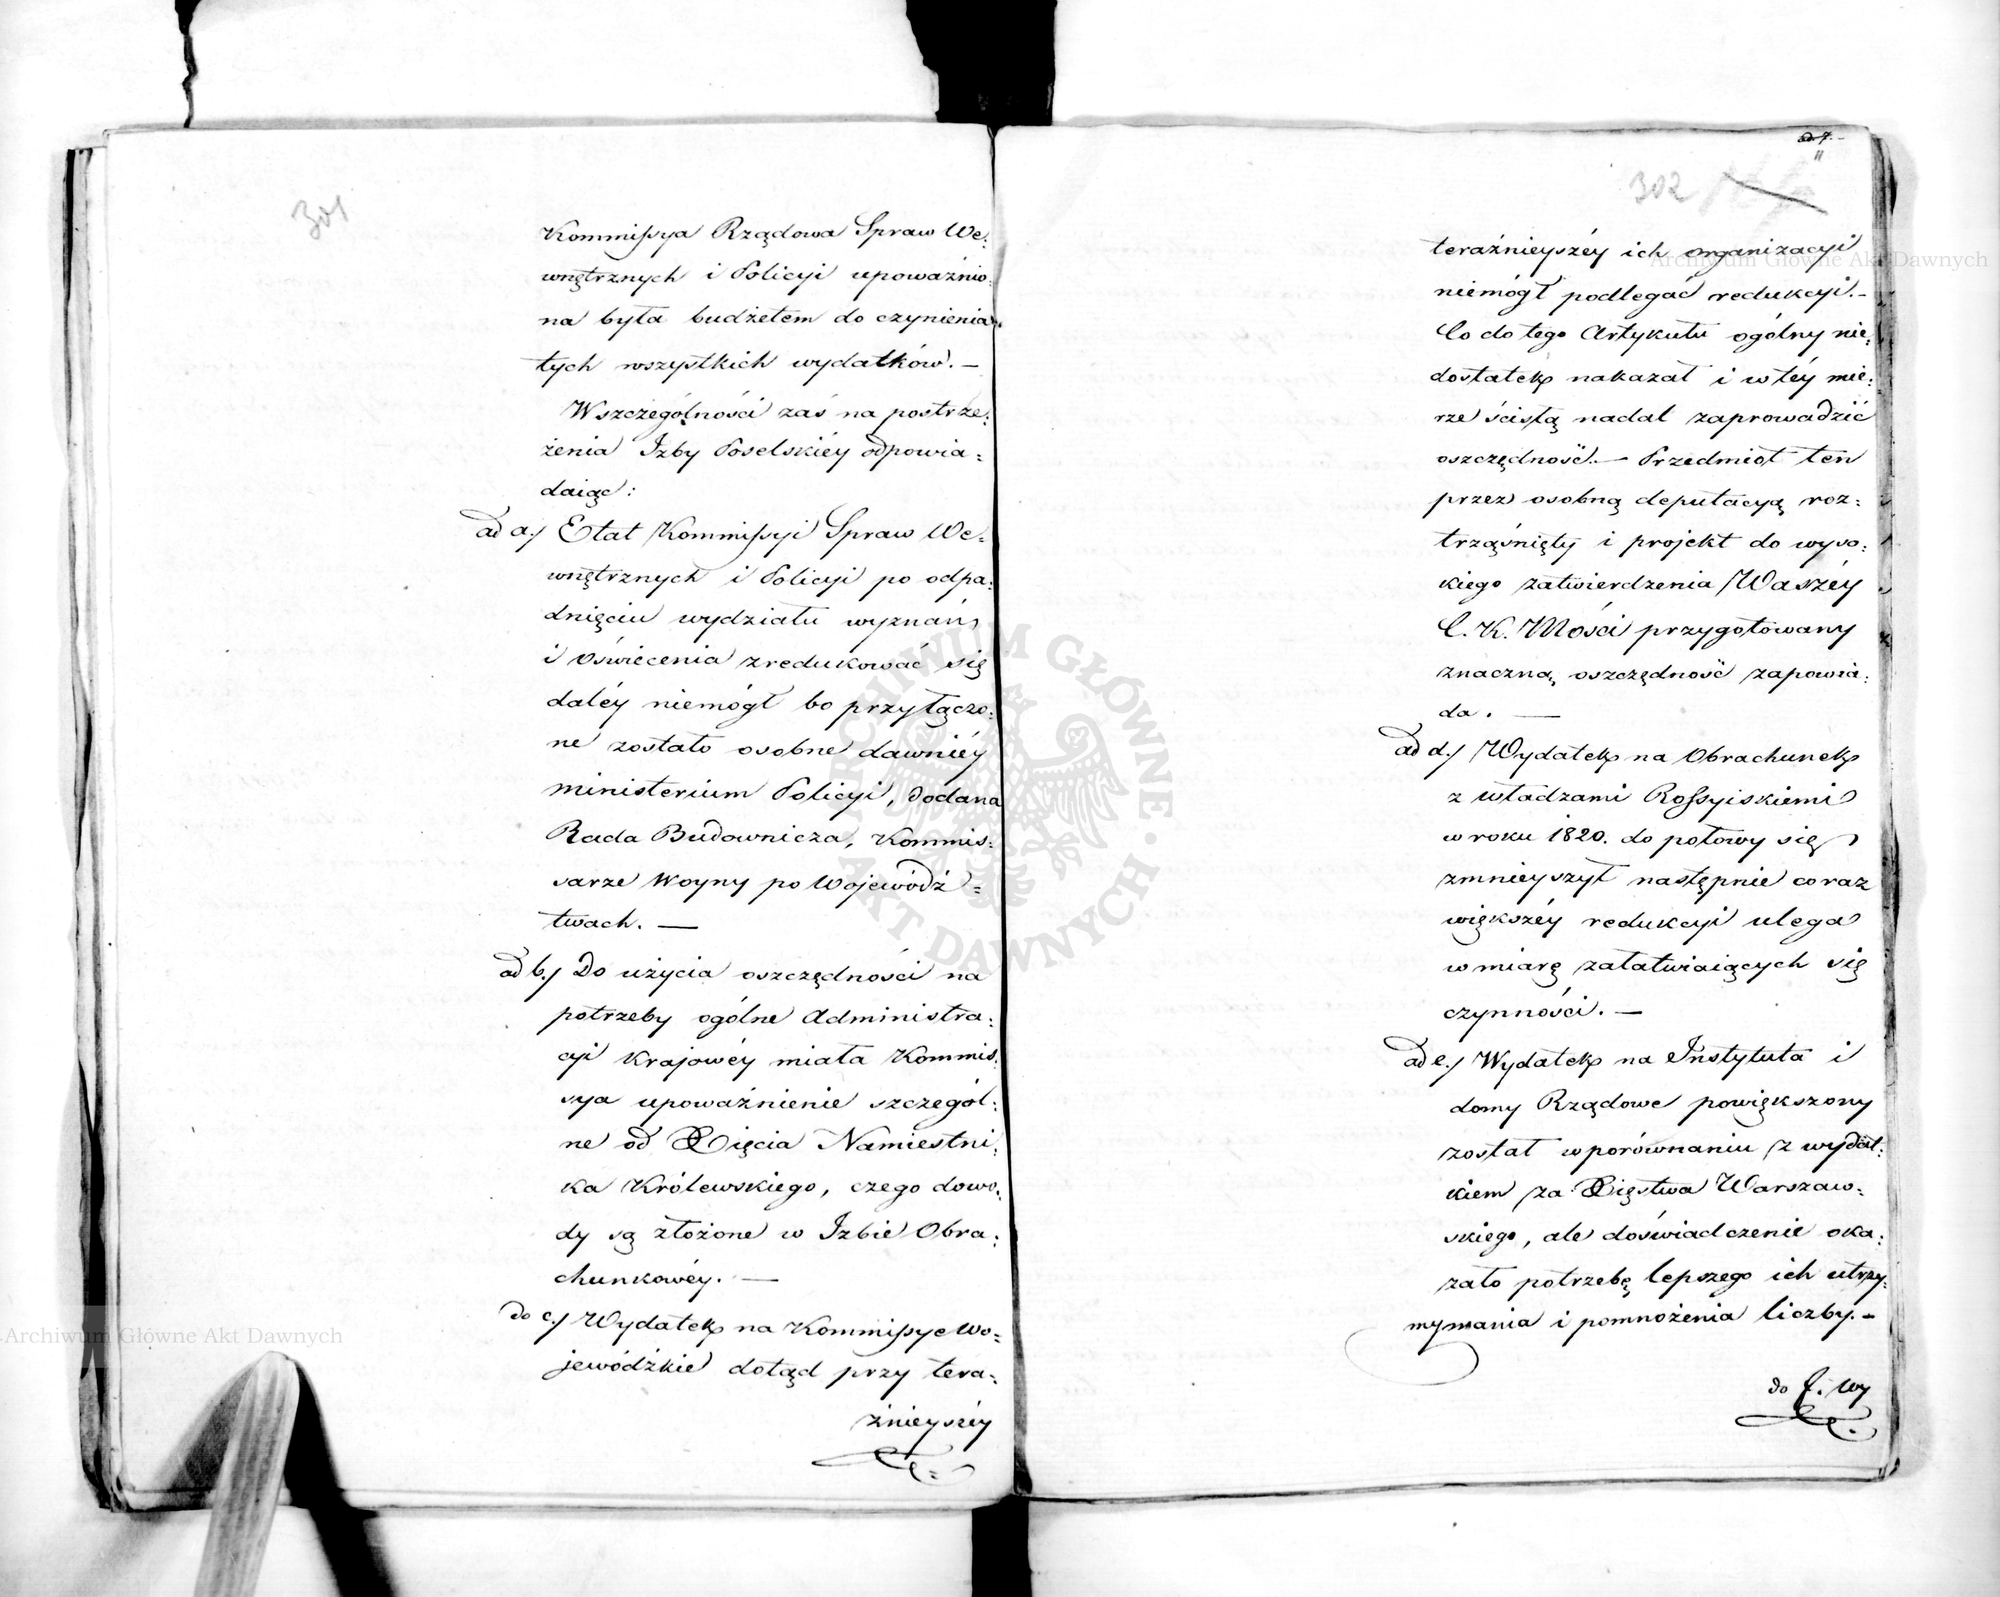 301
Kommissya Rządowa Spraw We:
wnętrznych i Policyi upoważnio:
na była budżetem do czynienia
tych wszystkich wydatków. —
Wszczególności zaś na postrze:
żenia Izby Poselskiéy odpowia:
daiąc:
ad a./ Etat Kommissyi Spraw We:
wnętrznych i Policyi po odpa:
dnięciu wydziału wyznań
i oświecenia zredukować się
daléy niemógł bo przyłączo:
ne zostało osobne dawniéy
ministerium Policyi, dodana
Rada Budownicza, Kommis:
sarze Woyny po Wojewódz:
twach. —
ad b./ Do użycia oszczędności na
potrzeby ogólne Administra:
cyi Krajowéy miała Kommis:
sya upoważnienie szczegól:
ne od Xięcia Namiestni:
ka Królewskiego, czego dowo:
dy są złożone w Izbie Obra:
chunkowéy. —
do c./ Wydatek na Kommissye Wo:
jewódzkie dotąd przy tera:
źnieyszéy
ad. 7. -
302
teraźnieyszéy ich organizacyi
niemógł podlegać redukcyi. —
Co do tego Artykułu ogólny nie:
dostatek nakazał i w téy mie:
rze ścisłą nadal zaprowadzić
oszczędność. — Przedmiot ten
przez osobną deputacyą roz:
trząśnięty i projekt do wyso:
kiego zatwierdzenia Waszéy
C. K. Mości przygotowany
znaczną oszczędność zapowia:
da. —
ad d./ Wydatek na Obrachunek
z władzami Rossyiskiemi
w roku 1820. do połowy się
zmnieyszył następnie coraz
większéy redukcyi ulega
w miarę załatwiaiących się
czynności. —
ad e./ Wydatek na Instytuta i
domy Rządowe powiększony
został w porównaniu z wydat:
kiem za Xięstwa Warszaw:
skiego, ale doświadczenie oka:
zało potrzebę lepszego ich utrzy:
mymania i pomnożenia liczby. —
do f. Wy
Archiwum Główne Akt Dawnych
Archiwum Główne Akt Dawnych
ARCHIWUM GŁÓWNE AKT DAWNYCH